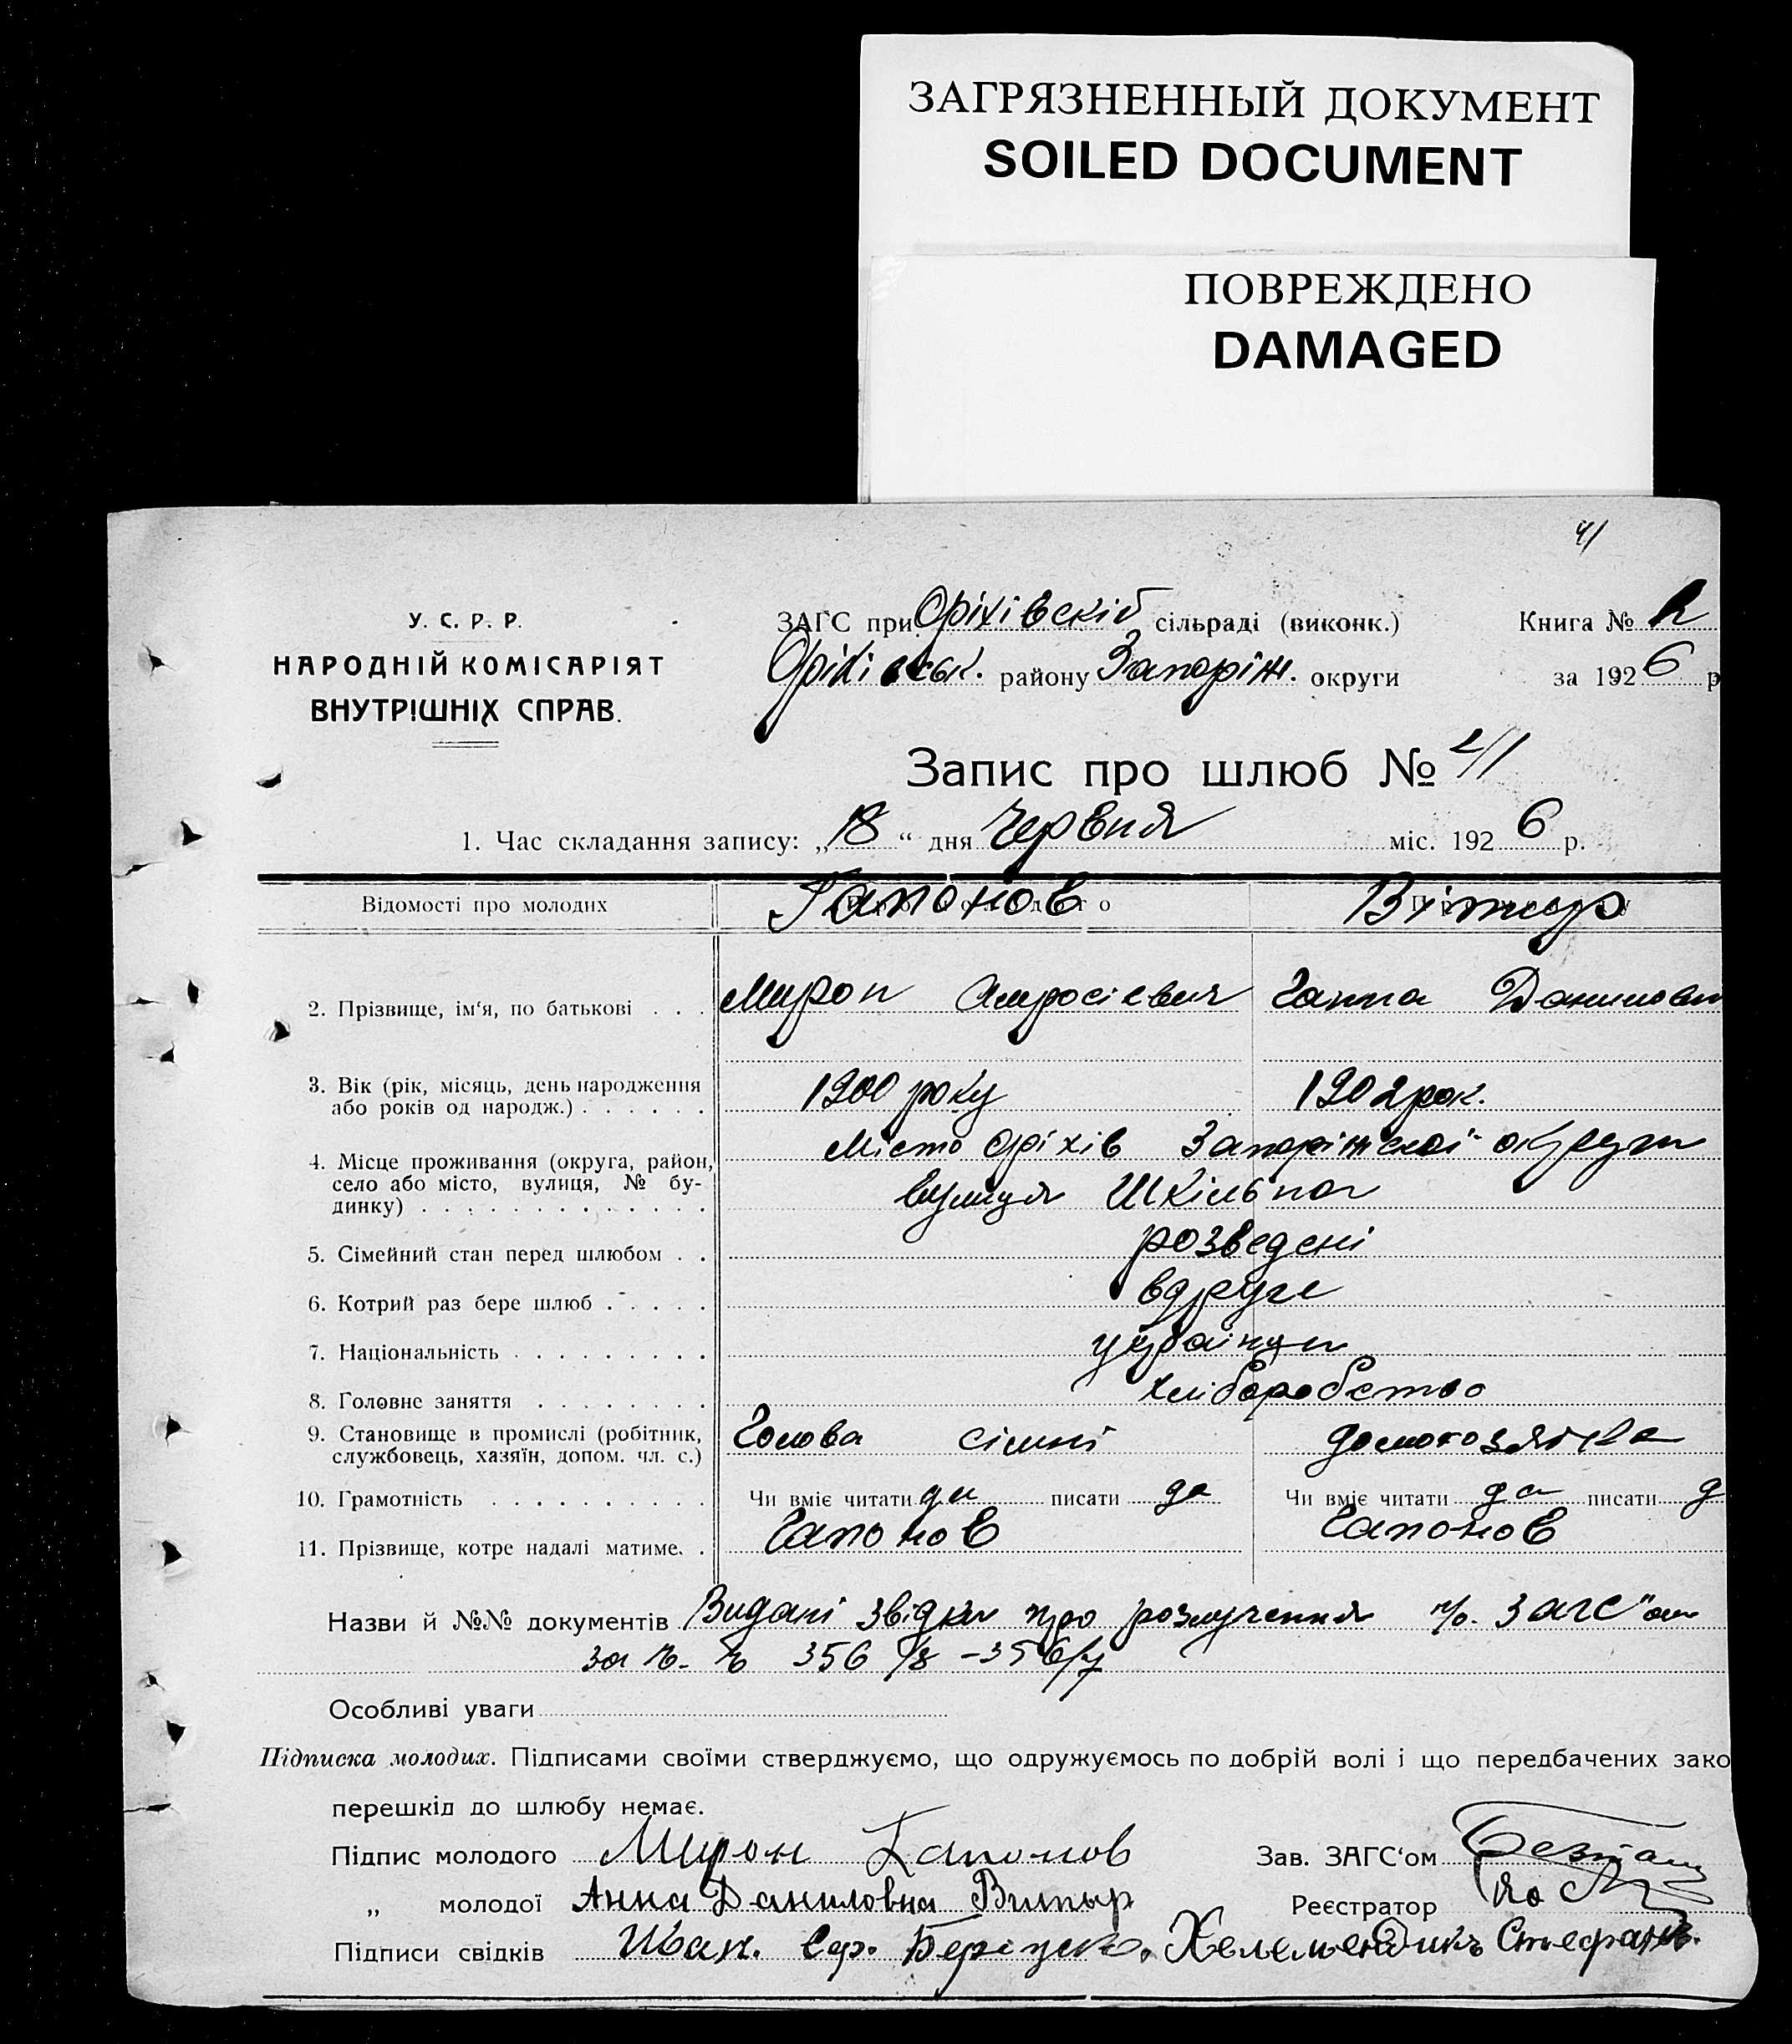 ЗАГРЯЗНЕННЫЙ ДОКУМЕНТ
SOILED DOCUMENT
ПОВРЕЖДЕНО
DAMAGED
41
У. С. Р. Р.
НАРОДНІЙ КОМІСАРІЯТ
ВНУТРІШНІХ СПРАВ.
ЗАГС при Оріхівскій сільраді (виконк.)
Книга №
Оріхівськ. району Запоріж. округи
за 1926 р
Запис про шлюб № 41
1. Час складання запису: „18“ дня Червня міс. 1926 р.
Відомості про молодих
Гапонов
Вітир
2. Прізвище, ім‘я, по батькові . . .
Мирон Амросієвич
Ганна Данилови
3. Вік (рік, місяць, день народження
або років од народж.) . . . . . .
1900 року
1902 рок.
4. Місце проживання (округа, район,
село або місто, вулиця, № бу-
динку) . . . . . . . . . . . . .
Місто Оріхів Запоріжскої округи
вулиця Шкільна
5. Сімейний стан перед шлюбом . .
розведені
6. Котрий раз бере шлюб . . . . .
вдруге
7. Національність . . . . . . . . .
українци
8. Головне заняття . . . . . . . .
хліборобство
9. Становище в промислі (робітник,
службовець, хазяїн, допом. чл. с.)
Голова сімні
домогозяйка
10. Грамотність . . . . . . . . . .
Чи вміє читати да писати да
Чи вміє читати да писати д
11. Прізвище, котре надалі матиме. .
Гапонов
Гапонов
Назви й №№ документів Видані звідки про розлучення ЗАГС"ом
за 356 356/у
Особливі уваги
Підписка молодих. Підписами своїми стверджуємо, що одружуємось по добрій волі і що передбачених зако
перешкід до шлюбу немає.
Підпис молодого Мирон Гапонов
Зав. ЗАГС‘ом
„ молодої Анна Даниловна Витыр
Реєстратор
Підписи свідків Иван. Стефанъ.